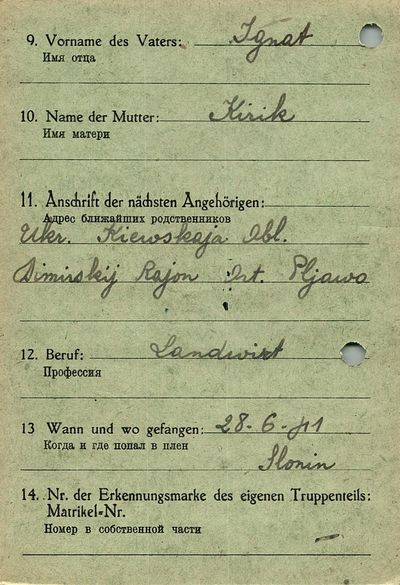 9. Vorname des Vaters: Ignat
Имя отца
10. Name der Mutter: Kirik
Имя матери
11. Anschrift der nächsten Angehörigen:
Адрес ближайших родственников
Ukr. Kiewskaja Obl.
Dimirskij Rajon Ort. Pljawo
12. Beruf: Landwirt
Профессия
13 Wann und wo gefangen: 28-6-41
Когда и где попал в плен
Slonin
14. Nr. der Erkennungsmarke des eigenen Truppenteils:
Matrikel-Nr.
Номер в собственной части